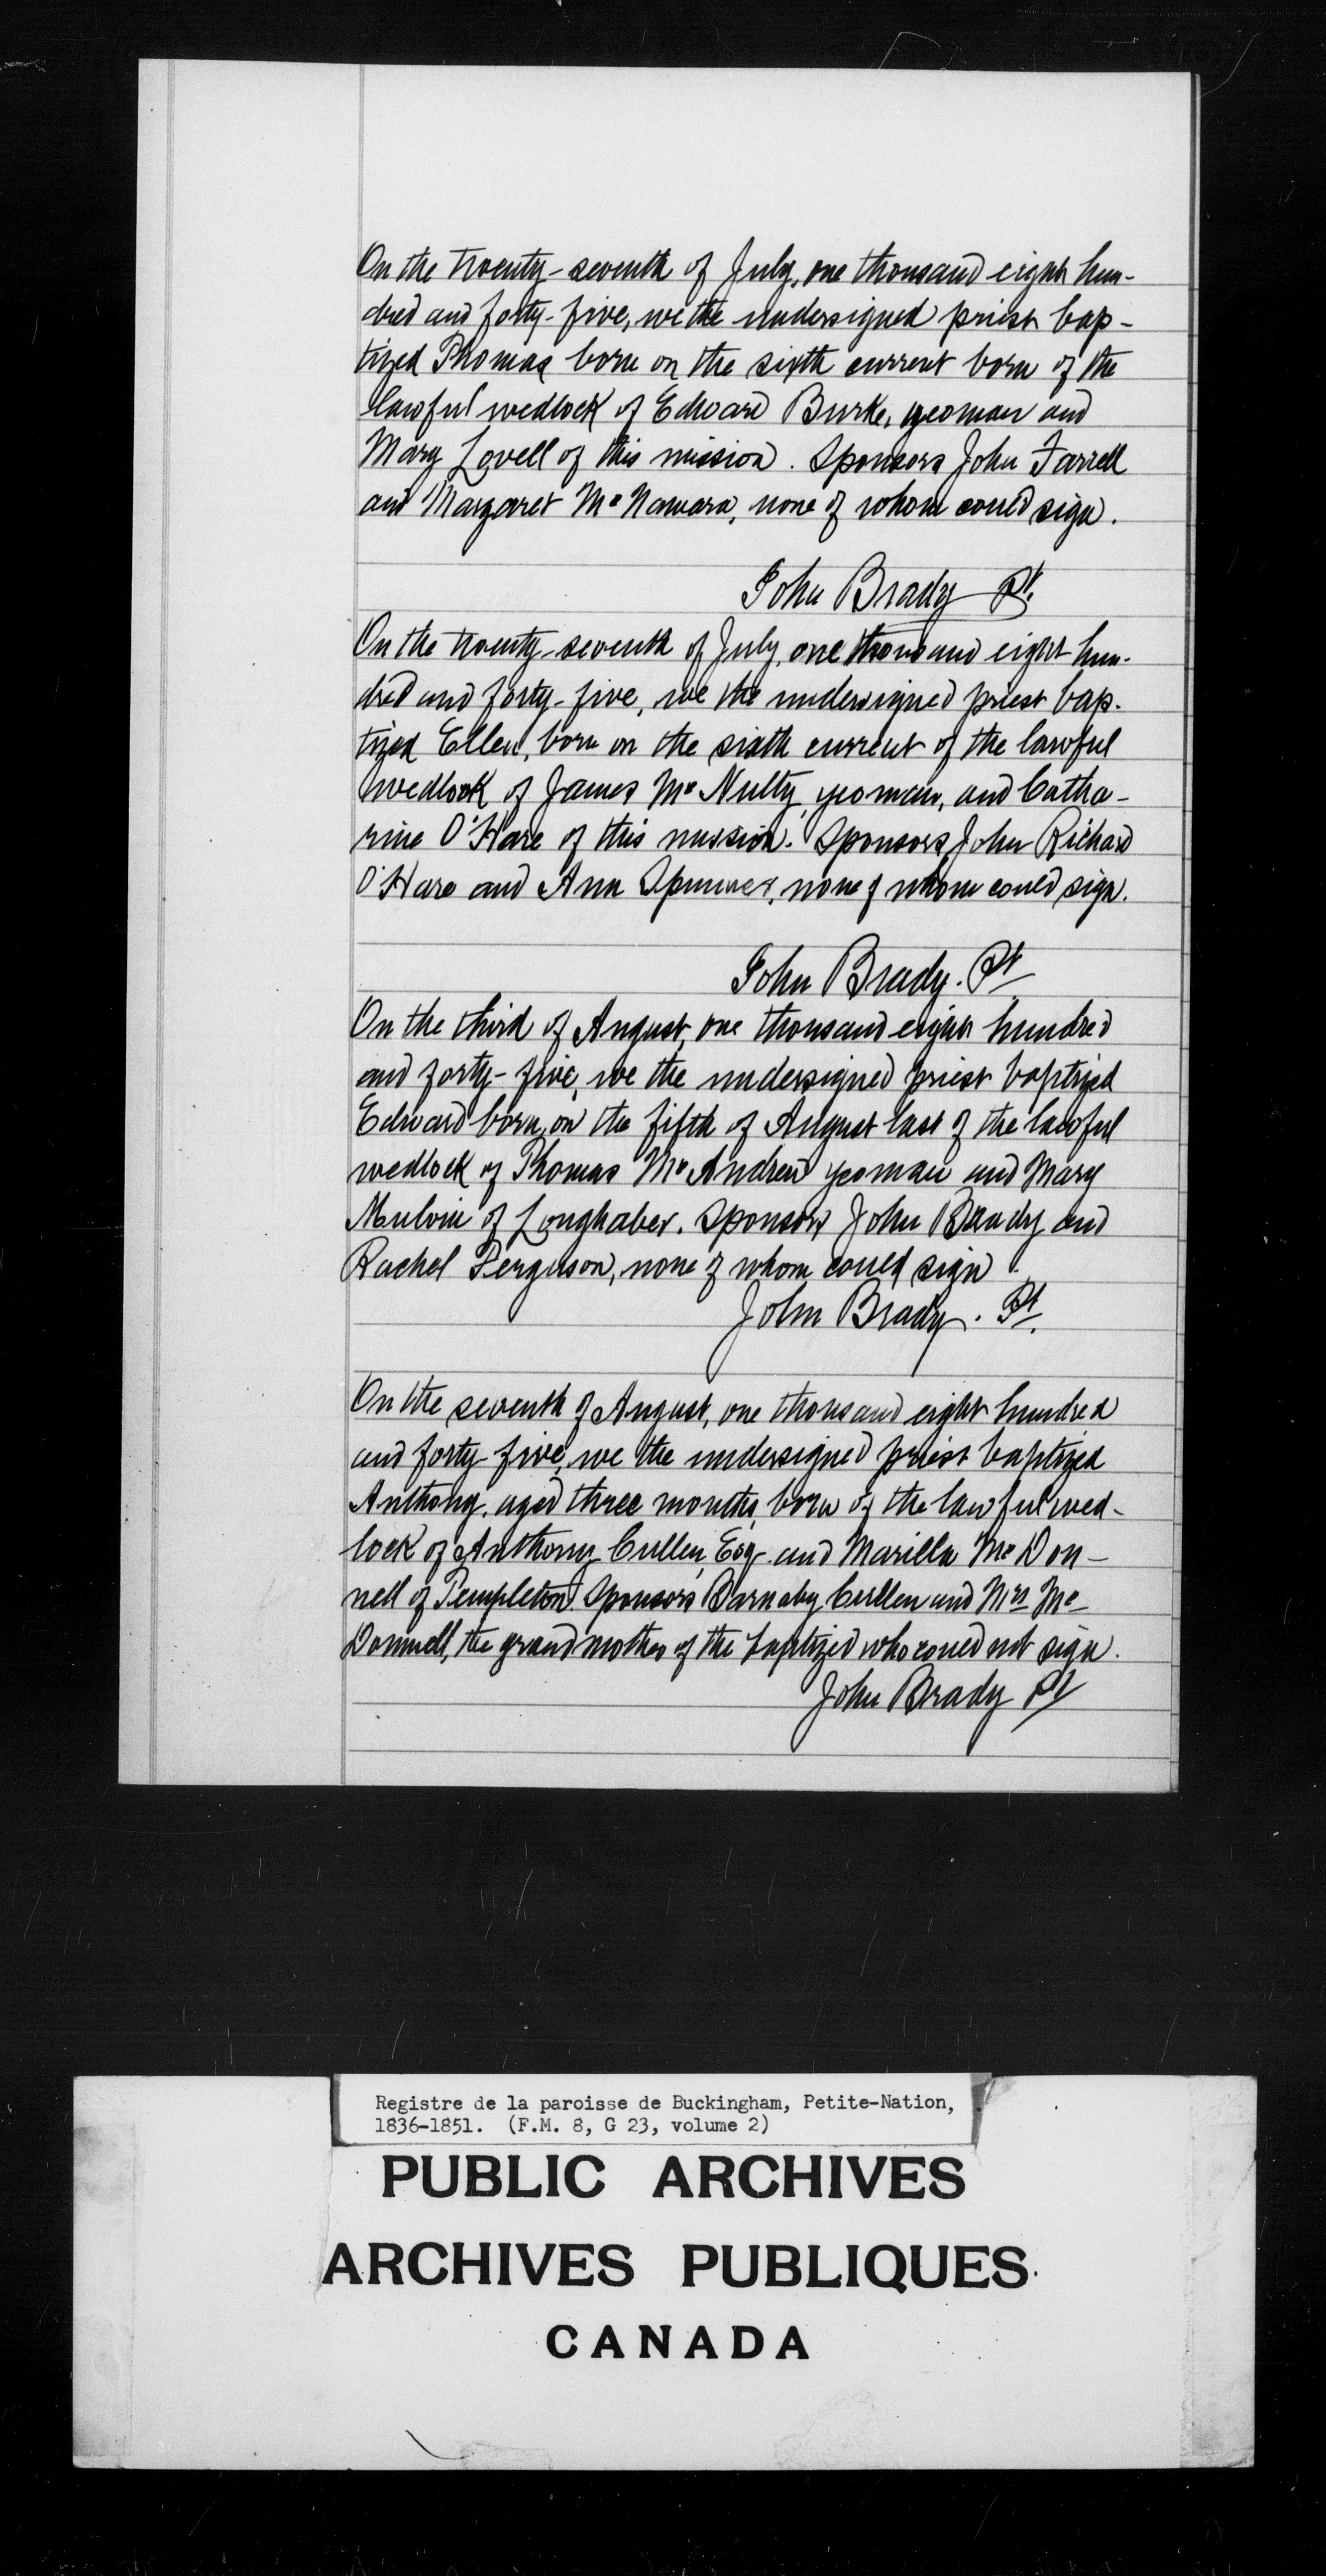 On the twenty-seventh of July, one thousand eight hun-
dred and forty-five, we the undersigned priest bap-
tized Thomas born on the sixth current born of the
lawful wedlock of Edward Burke, yeoman and
Mary Lovell of this mission. Sponsors John Farrell
and Margaret Mc Namara, none of whom could sign.
John Brady Pt.
On the twenty-seventh of July, one thousand eight hun-
dred and forty-five, we the undersigned priest bap-
tized Ellen, born on the sixth current of the lawful
wedlock of James Mc Nulty, yeoman, and Catha-
rine O'Hare of this mission. Sponsors John Richard
O'Hare and Ann none of whom could sign.
John Brady. Pt
On the third of August, one thousand eight hundred
and forty-five, we the undersigned priest baptized
Edward born, on the fifth of August last of the lawful
wedlock of Thomas Mc Andrew yeoman and Mary
of Longhaber. Sponsors John Brady and
Rachel Ferguson, none of whom could sign.
John Brady. Pt.
On the seventh of August, one thousand eight hundred
and forty-five, we the undersigned priest baptized
Anthony, aged three months, born of the lawful wed-
lock of Anthony Cullen, Esq. and Marilla Mc Don-
nell of Templeton. Sponsors Barnaby Cullen and Mrs Mc-
Donnell, the grandmother of the baptized who could not sign.
John Brady Pt
Registre de la paroisse de Buckingham, Petite-Nation,
1836-1851. (F.M. 8, G 23, volume 2)
PUBLIC ARCHIVES
ARCHIVES PUBLIQUES
CANADA